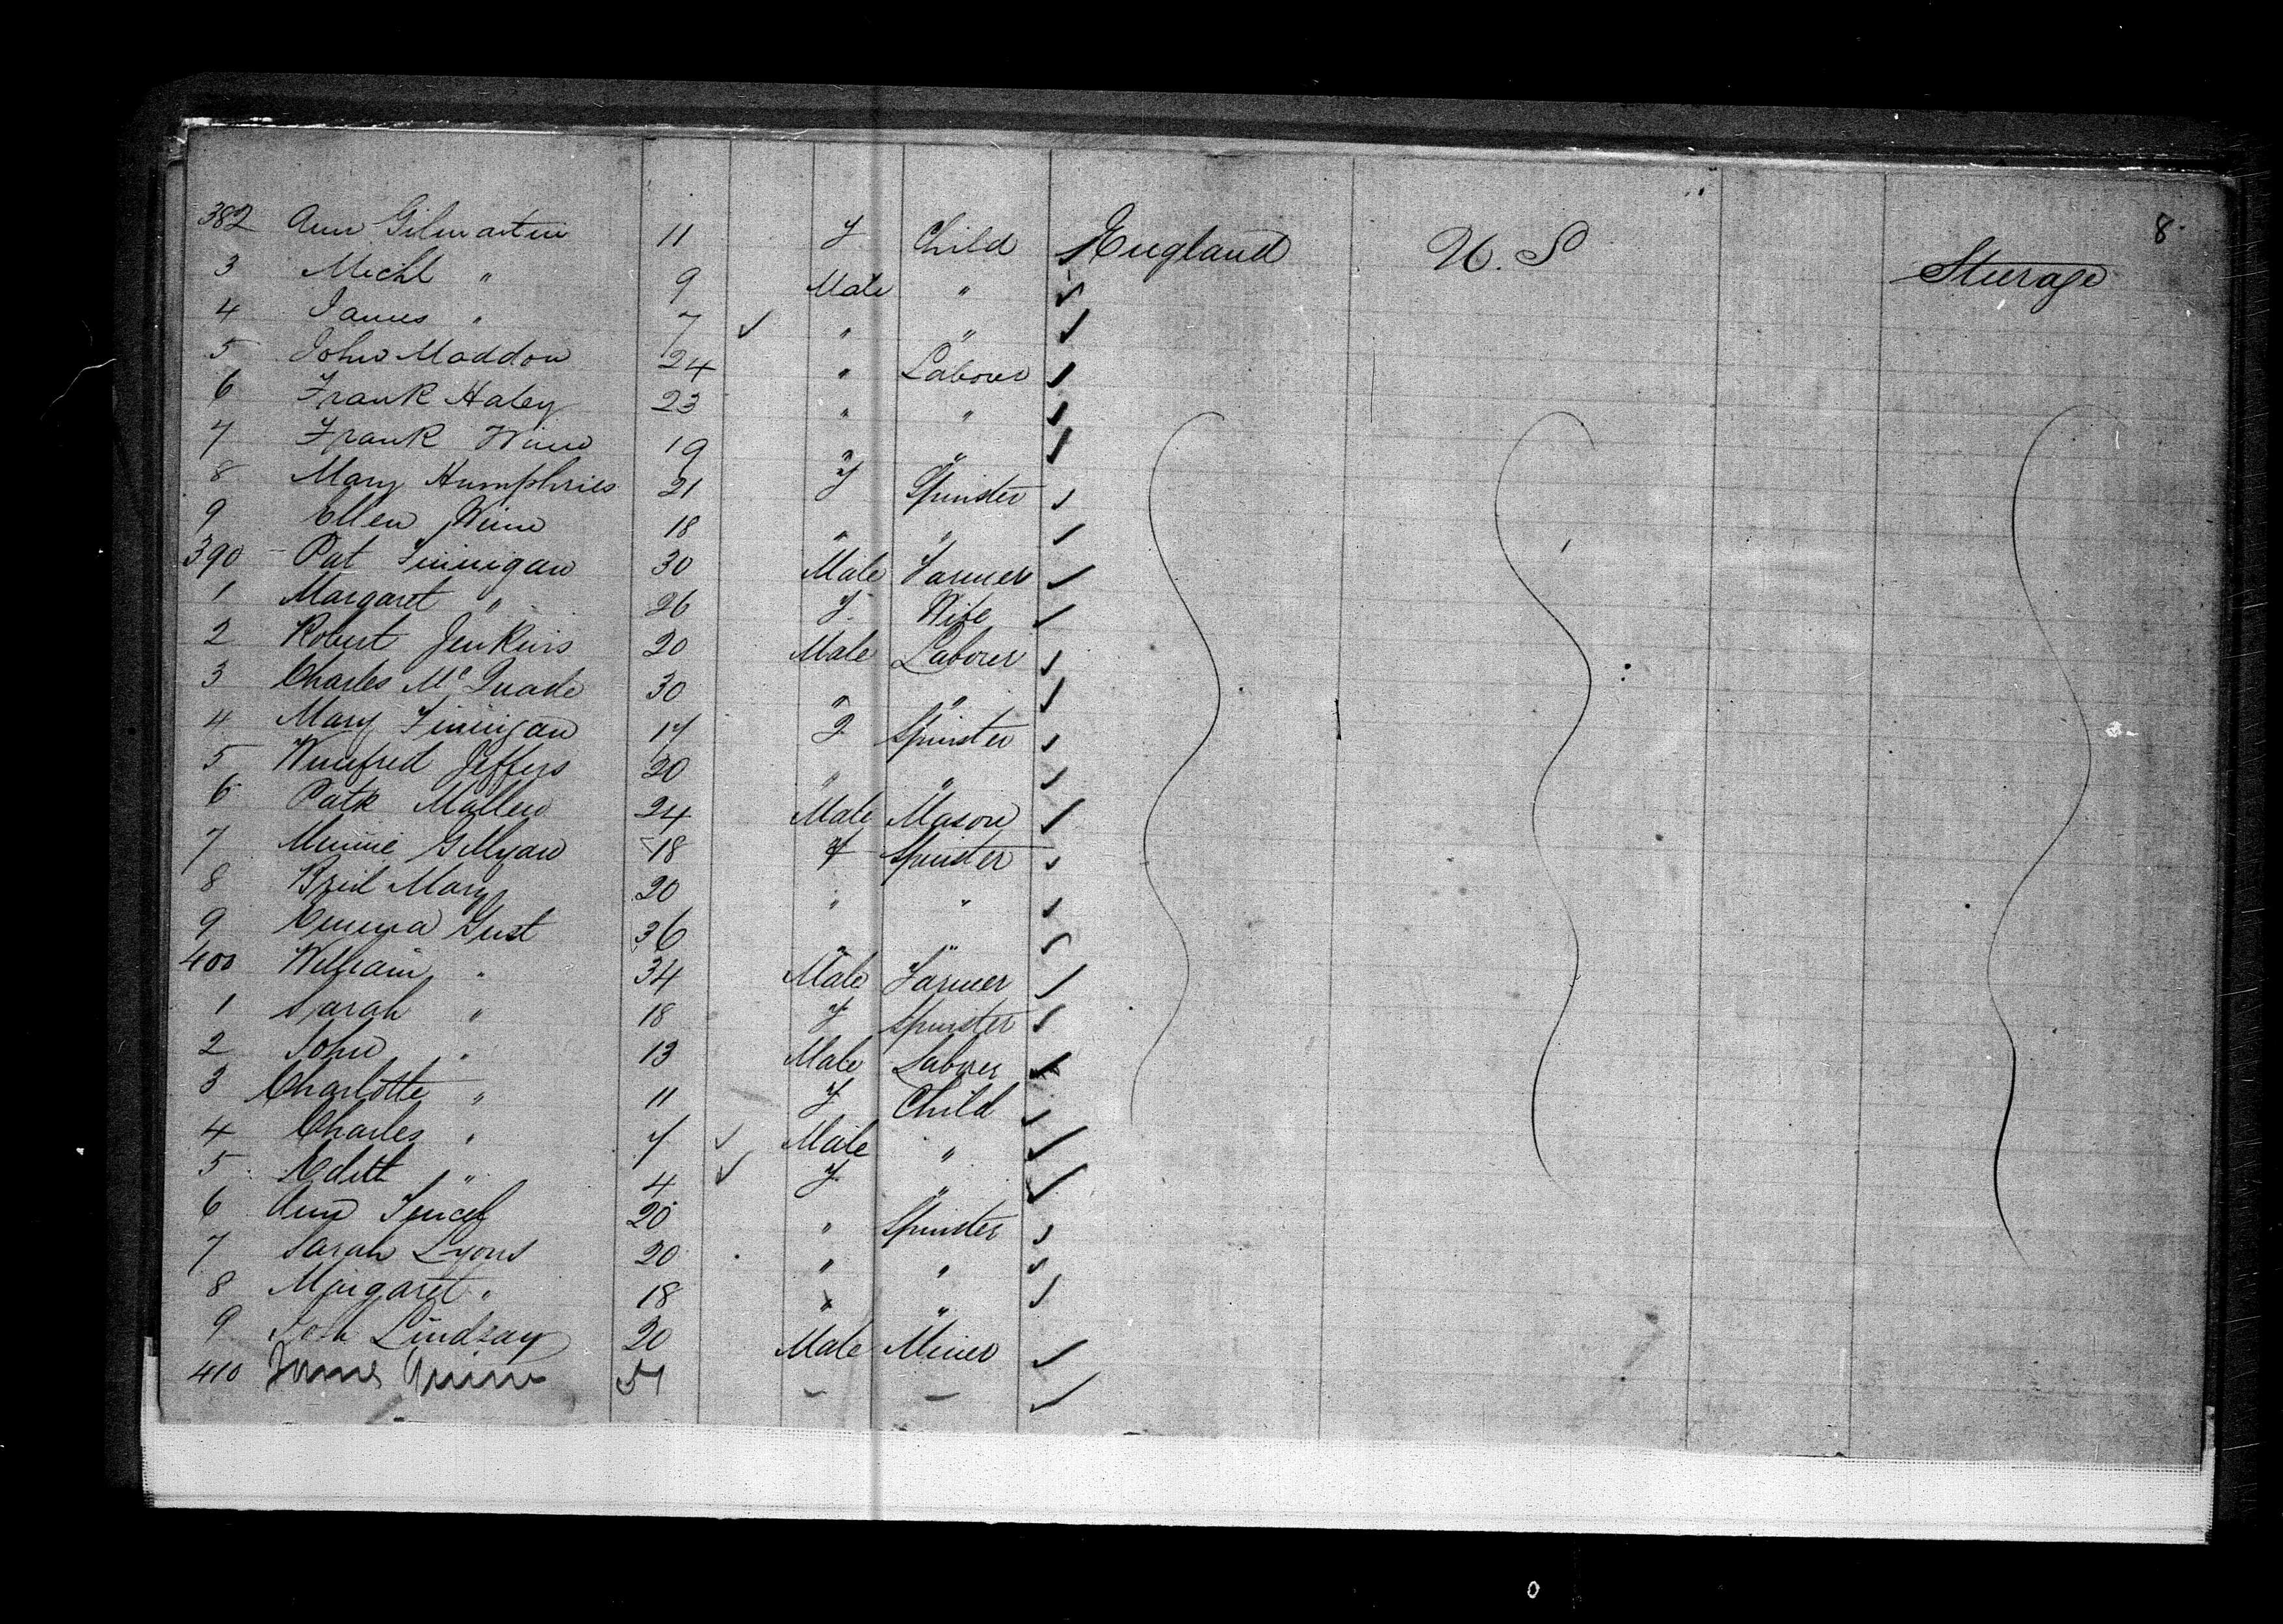 8.
382 Ann Gilmartin 11 F Child England U. S Steerage
3 Michl " 9 Male "
4 James " 7 ✓ " "
5 John Maddon 24 " Laborer
6 Frank Haley 23 " "
7 Frank 19 " "
8 Mary Humphries 21 F Spinster
9 Ellen 18 " "
390 Pat Finnigan 30 Male Farmer
1 Margaret " 26 F Wife
2 Robert Jenkins 20 Male Laborer
3 Charles McQuade 30 " "
4 Mary Finnigan 17 F Spinster
5 Winifred Jeffers 20 " "
6 Patk Mallen 24 Male Mason
7 Minnie 18 F Spinster
8 Mary 20 " "
9 Emma Gust 36 " "
400 William " 34 Male Farmer
1 Sarah " 18 F Spinster
2 John " 13 Male Laborer
3 Charlotte " 11 F Child
4 Charles " 7 ✓ Male "
5 Edith " 4 ✓ F "
6 Ann 20 " Spinster
7 Sarah Lyons 20 " "
8 Margaret " 18 " "
9 Lindsay 20 Male Miner
410 James Quinn 51 - -